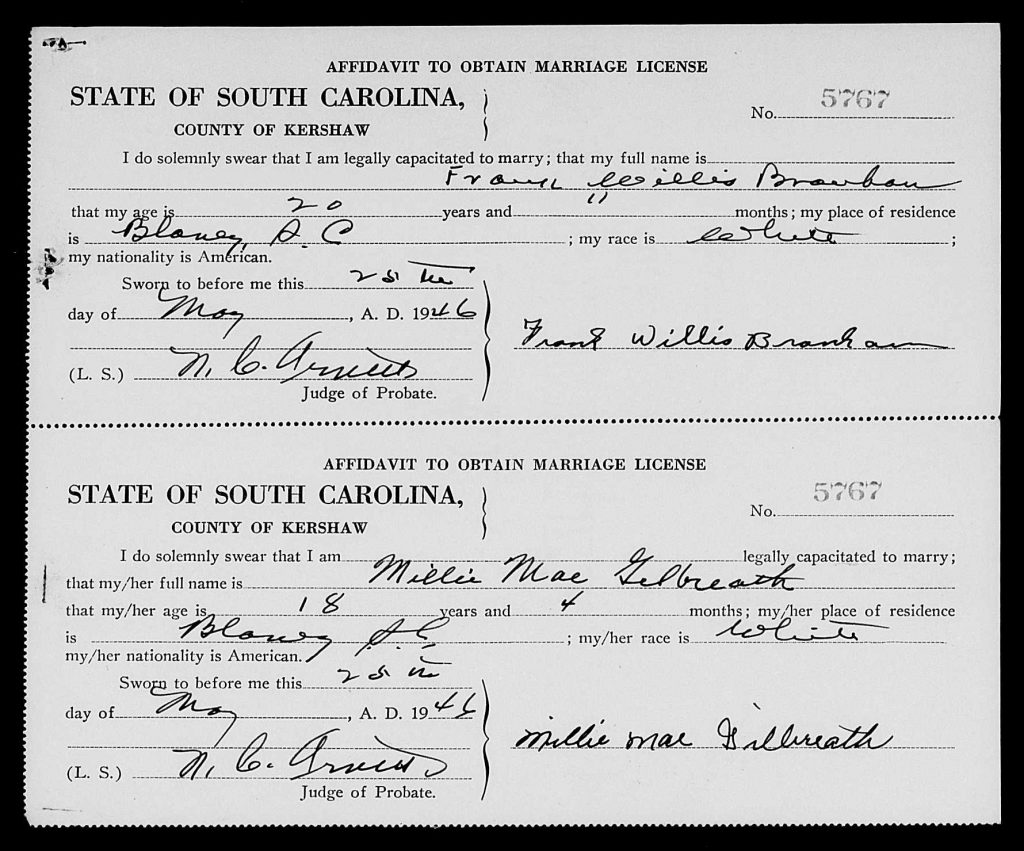 AFFIDAVIT TO OBTAIN MARRIAGE LICENSE
STATE OF SOUTH CAROLINA,
No. 5767
COUNTY OF KERSHAW
I do solemnly swear that I am legally capacitated to marry; that my full name is
Frank Willis Branham
that my age is 20 years and 11 months; my place of residence
is Blaney, S. C ; my race is White ;
my nationality is American.
Sworn to before me this 25th
day of May, A. D. 1946
Frank Willis Branham
(L. S.) N. C. Arnett
Judge of Probate.
AFFIDAVIT TO OBTAIN MARRIAGE LICENSE
STATE OF SOUTH CAROLINA,
No. 5767
COUNTY OF KERSHAW
I do solemnly swear that I am legally capacitated to marry;
that my/her full name is Millie Mae Gilbreath
that my/her age is 18 years and 4 months; my/her place of residence
is Blaney S.C. ; my/her race is White
my/her nationality is American.
Sworn to before me this 25th
day of May, A. D. 1946
Millie Mae Gilbreath
(L. S.) N. C. Arnett
Judge of Probate.